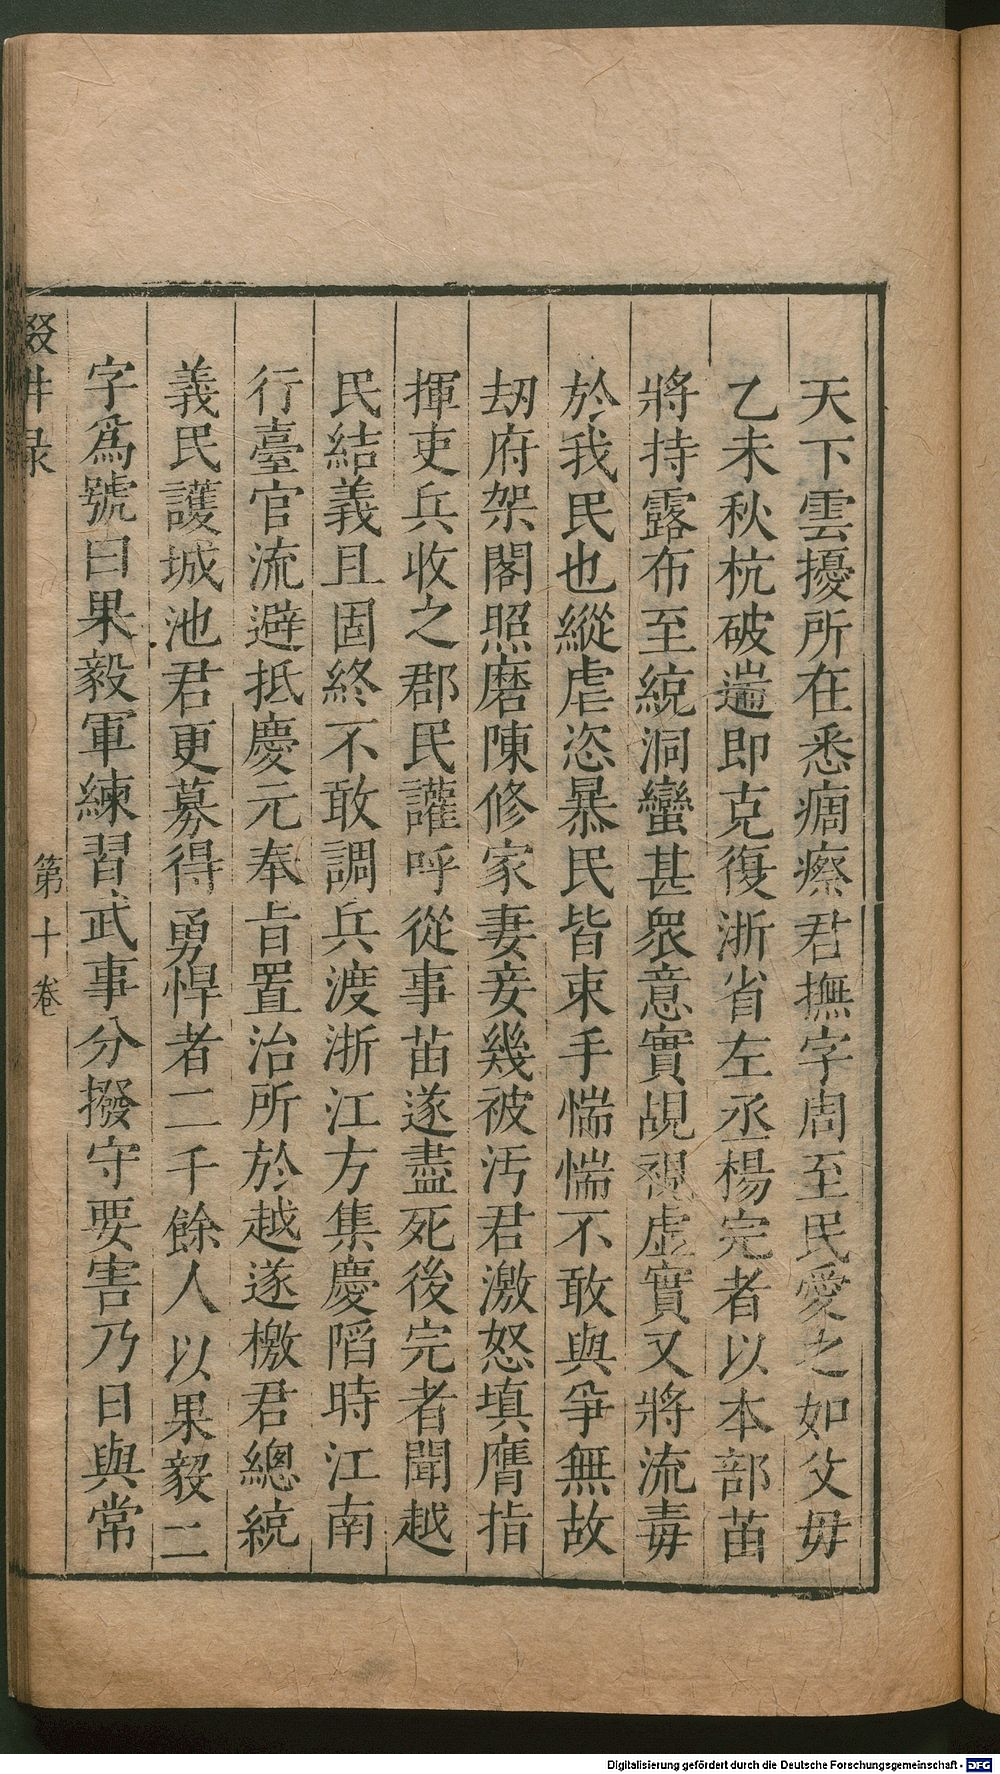 天下雲擾所在悉痌瘵君撫字周至民愛之如父毋
乙未秋杭破遄即克復浙省左丞楊完者以本部苗
將持露布至統洞蠻甚衆意實覘視虛實又將流毒
於我民也縱虐恣暴民皆束手惴惴不敢與爭無故
刼府架閣照磨陳修家妻妾幾被汚君激怒填膺指
揮吏兵收之郡民讙呼從事苗遂盡死後完者聞越
民結義且固終不敢調兵渡浙江方集慶䧟時江南
行臺官流避抵慶元奉㫖置治所於越遂檄君總統
義民護城池君更募得勇悍者二千餘人以果毅二
字爲號曰果毅軍練習武事分撥守要害乃日與常
輟畊录
第十卷
Digitalisierung gefördert durch die Deutsche Forschungsgemeinschaft - DFG